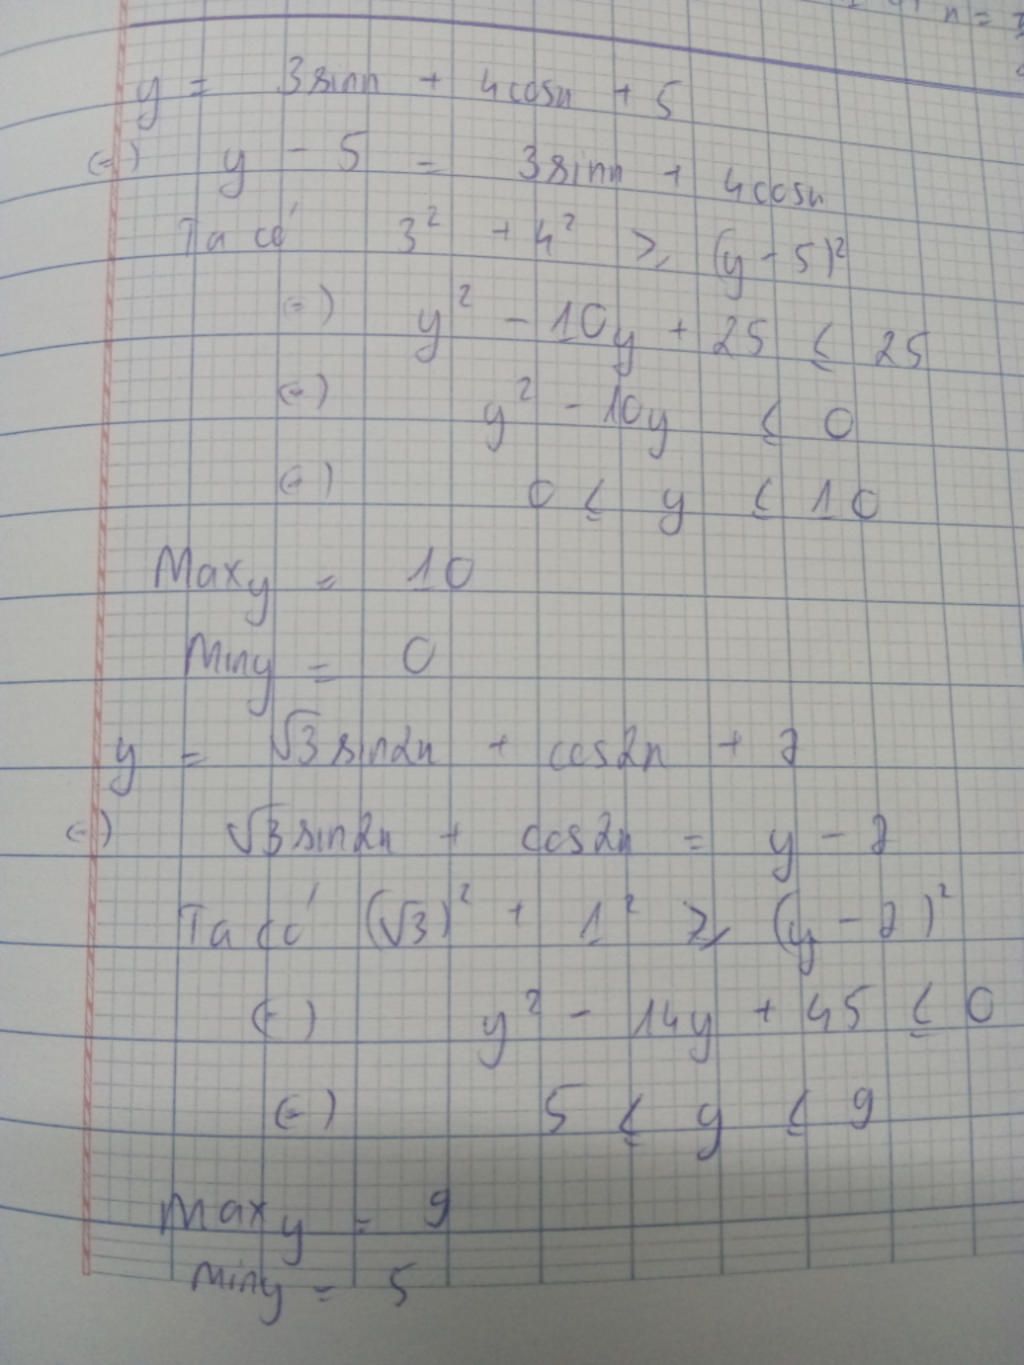 y = 3sinx + 4cosx + 5
(=) y - 5 = 3sinx + 4cosx
Ta có 3² + 4² ≥ (y - 5)²
(=) y² - 10y + 25 ≤ 25
(=) y² - 10y ≤ 0
(=) 0 ≤ y ≤ 10
Maxy = 10
Miny = 0
y = √3sin2x + cos2x + 7
(=) √3sin2x + cos2x = y - 7
Ta có (√3)² + 1² ≥ (y - 7)²
(=) y² - 14y + 45 ≤ 0
(=) 5 ≤ y ≤ 9
Maxy = 9
Miny = 5